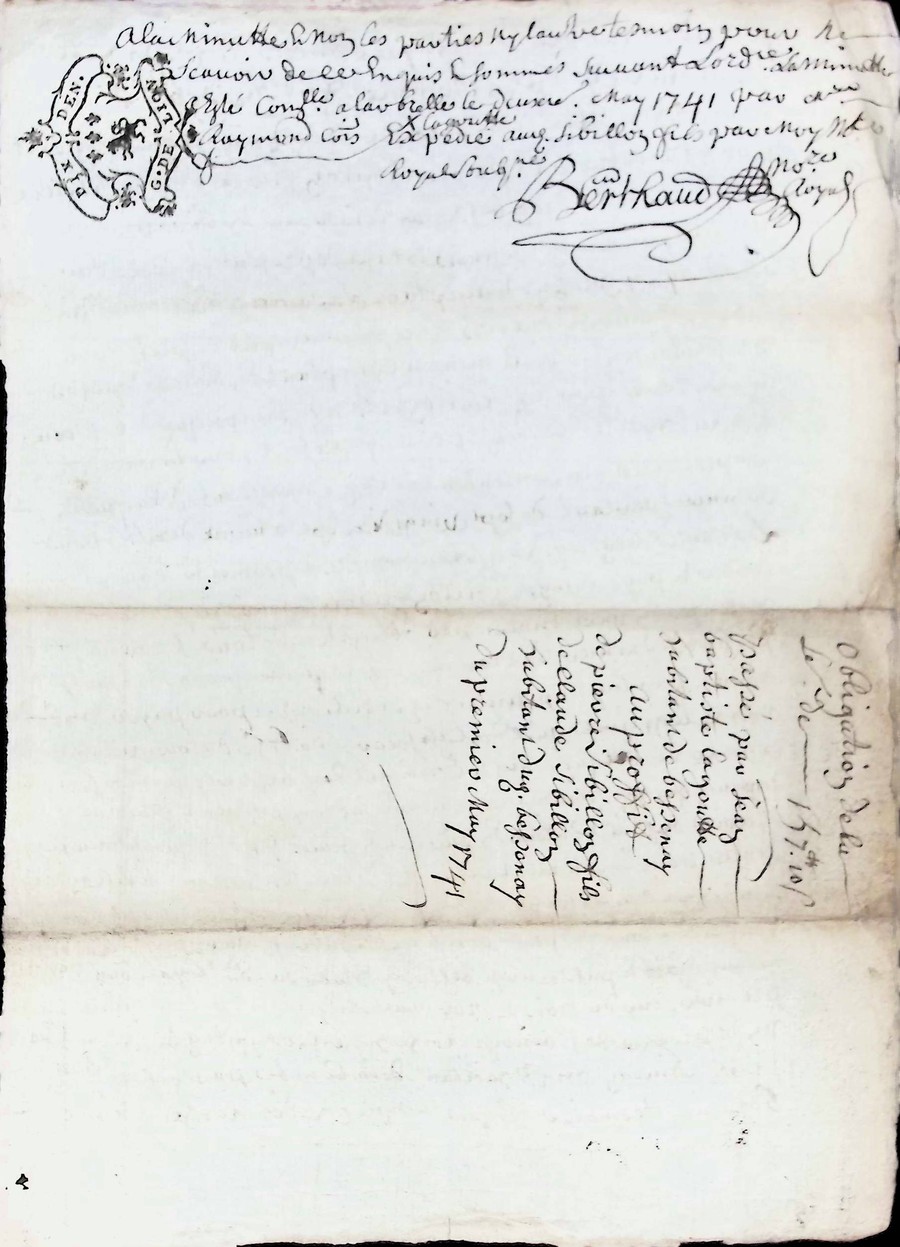 alaMinutte & Non les parties ny lautre tesmoin pour ne
Scavoir de ce Enquis & sommes suivant Lordre La Minutte
Esté Conllé alarbrelles le deuxe. May 1741 par
Raymond Cõis Expedié aud. Sibillon fils par Moy
x lagoutte
Royal Soubsné
Berthaud no.re
Royal
DIN DEN.
G. DE LION
Obligation dela
Se. de — 157.tt 10s
Passé par Jean
baptiste lagoutte
habitant de bessenay
au proffit
de pierre Sibillon fils
de claude Sibillon
habitant dud. bessenay
du premier May 1741